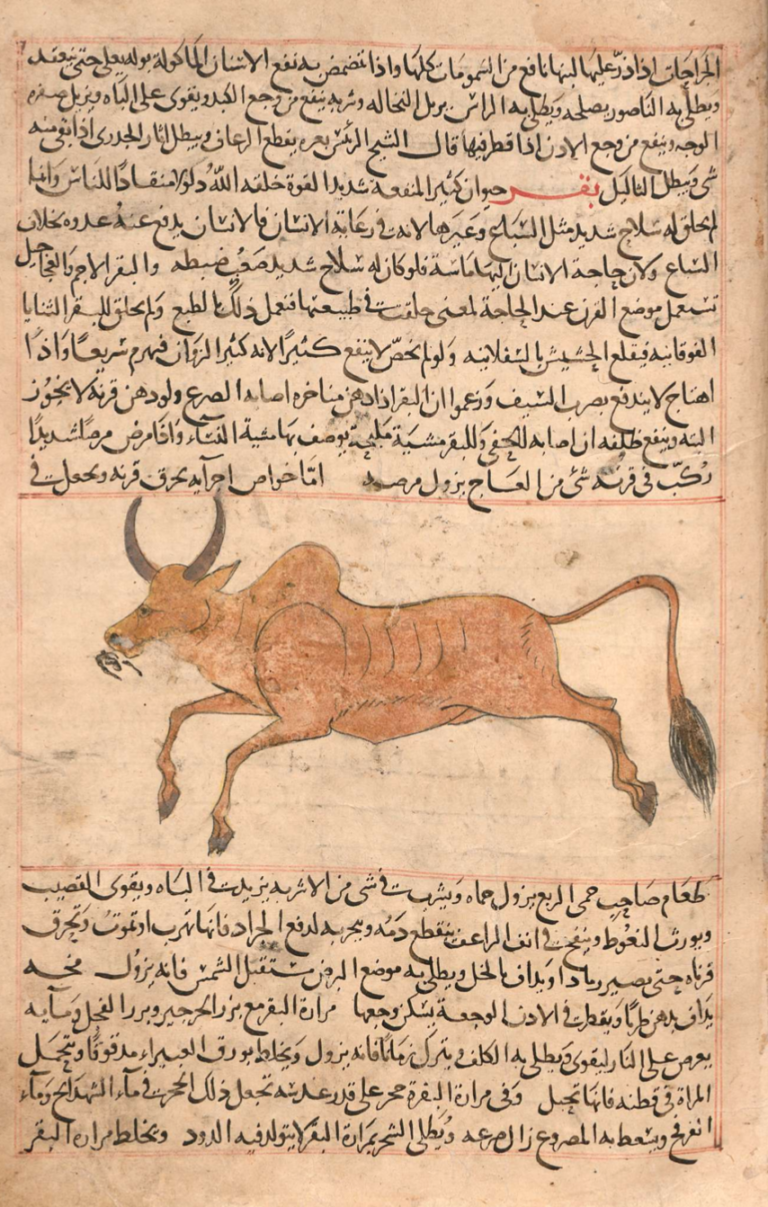 الجراحات اذا ذر عليها لبنها نافع من السمومات كلها واذا تضمض به نفع الاسنان الماكولة بوله يغلى حتى ينعقد
ويطلى به الناصور يصلحه ويطلى به الراس يزيل النخاله وشربه ينفع من وجع الكبد ويقوى على الباه ويزيل صفره
الوجه وينفع من وجع الاذن اذا قطر فيها قال الشيخ الرئيس بعره يقطع الرعاف ويبطل اثار الجدرى اذا بقى منه
شى ويبطل الثاليل بقر حيوان كثير المنفعه شديد القوة خلقه الله ذلولا منقادًا للناس وانما
لم يخلق له سلاح شديد مثل السباع وغيرها لانه فى رعاية الانسان فالانسان يدفع عنه عدوه بخلاف
السباع ولان حاجة الانسان اليها ماسة فلو كان له سلاح شديد صعب ضبطه والبقر الاجم كالعجاجيل
تستعمل موضع القرن عند الحاجة لمعنى خلقت فى طبيعتها فتعمل ذلك بالطبع ولم يخلق للبقر الثنايا
الفوقانيه فيقلع الحشيش بالسفلانيه ولو لم يخص لا ينفع كثيرًا لانه كثير النزوان فيهرم سريعًا واذا
اهتاج لا يندفع بضرب السيف وزعموا ان البقر اذا دهن مناخره اصابه الصرع ولو دهن قرنه لا يخور
البته وينفع ظلفه ان اصابه الحفى وللبقر مشية مليحة يوصف بها مشية النساء واذا مرض مرضًا شديدًا
ركب فى قرنه شئ من العاج يزول مرضه اما خواص اجزآيه يحرق قرنه ويجعل فى
طعام صاحب حمى الربع يزول حماه ويشرب فى شى من الاشربه يزيد فى الباه ويقوى القضيب
ويورث النعوظ وينفخ فى انف الراعف ينقطع دمه ويبخر به لدفع الجراد فانها تهرب او تموت ويحرق
قرناه حتى يصير رمادا ويداف بالخل ويطلى به موضع البرص مستقبل الشمس فانه يزول مخه
يداف بدهن ويقطر فى الاذن الوجعة يسكن وجعها مرارة البقر مع بزر الجرجير وبزر الفجل ومآيه
يعرض على النار ليقوى ويطلى به الكلف ويترك زمانًا فانه يزول ويخلط بورق العبيراء مدقوقًا وتتحمل
المراة فى قطنه فانها تحبل وفى مرارة البقرة حجر على قدر عدسه تجعل ذلك الحجر فى مآء الشهدانج ومآء
ويسعط به المصروع زال صرعه ويطلى الشجر بمرارة البقر لا يتولد فيه الدود ويخلط مرارة البقر